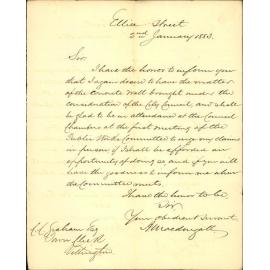 Ellice Street
2nd January 1883.
Sir
I have the honor to inform you
that I again desire to have the matter
of the Concrete Wall brought under the
consideration of the City Council, and shall
be glad to be in attendance at the Council
Chambers at the first meeting of the
Public Works Committee to urge my claims
in person if I shall be afforded an
opportunity of doing so and if you will
have the goodness to inform me when
the Committee meets.
I have the honor to be
Sir
Your obedient Servant
C. C. Graham Esq
Town Clerk